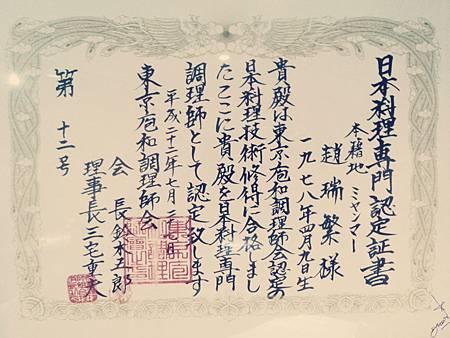 日本料理専門認定証書
本籍地 ミャンマー
趙瑞繁様
一九七八年四月九日生
貴殿は東京庖和調理師会認定の
日本料理技術修得に合格しまし
たここに貴殿を日本料理専門
調理師として認定致します
平成二十二年七月二十七日
東京庖和調理師会
会長 鈴木五郎
理事長 三宅重夫
第十二号